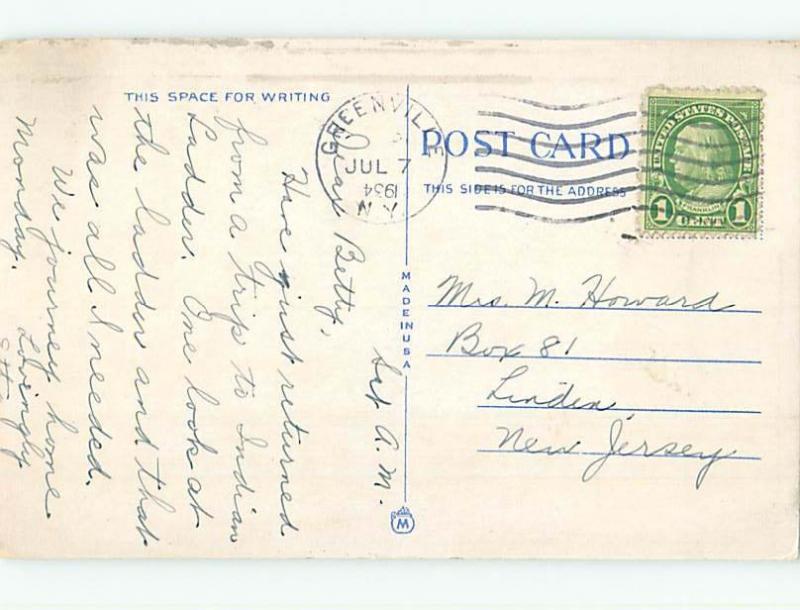 THIS SPACE FOR WRITING
Sat A.M.
Dear Betty,
Have just returned
from a trip to Indian
Ladder. One look at
the ladder and that
was all I needed.
We journey home
Monday.
Lovingly
GREENVILLE
JUL 7
1934
N.Y.
POST CARD
THIS SIDE IS FOR THE ADDRESS
UNITED STATES POSTAGE
FRANKLIN
1 CENT 1
MADE IN USA
Mrs. M. Howard
Box 81
Linden,
New Jersey
M